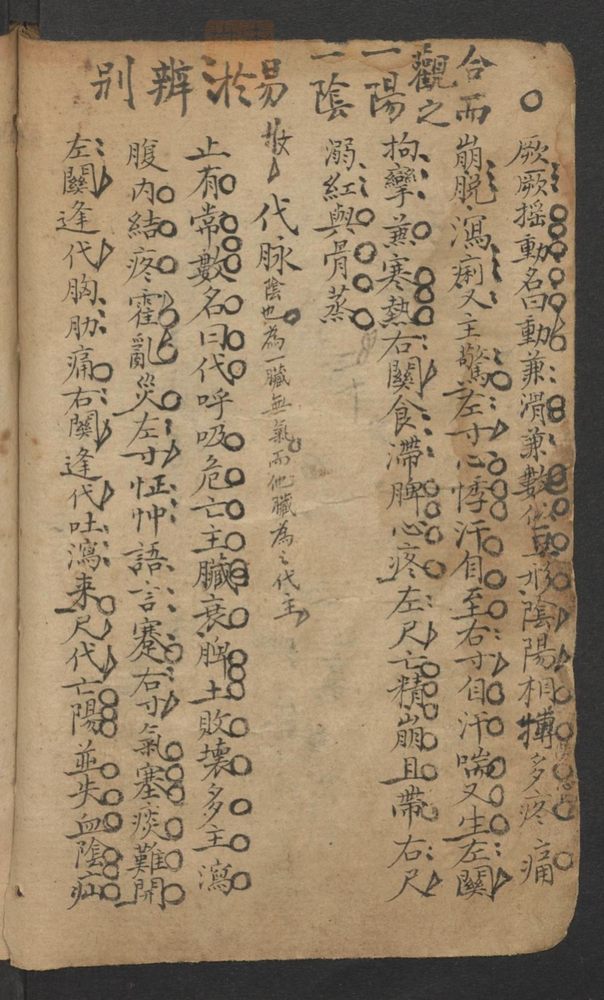 厥厥摇動名曰動兼滑兼數似豆形陰陽相搏多疼痛
崩脱瀉痢又主驚左寸心悸汗自至右寸自汗喘又生左關
拘攣兼寒熱右關食滯脾心疼左尺亡精崩且帶右尺
溺紅與骨蒸
代脉陰也為一臟無氣而他臟為之代主
止有常數名曰代呼吸危亡主臟衰脾土敗壞多主瀉
腹内結疼霍亂災左寸怔忡語言蹇右寸氣塞痰難開
左關逢代胸肋痛右關逢代吐瀉来尺代亡陽並失血陰疝
合而
觀之
一陽
一陰
易於辨别